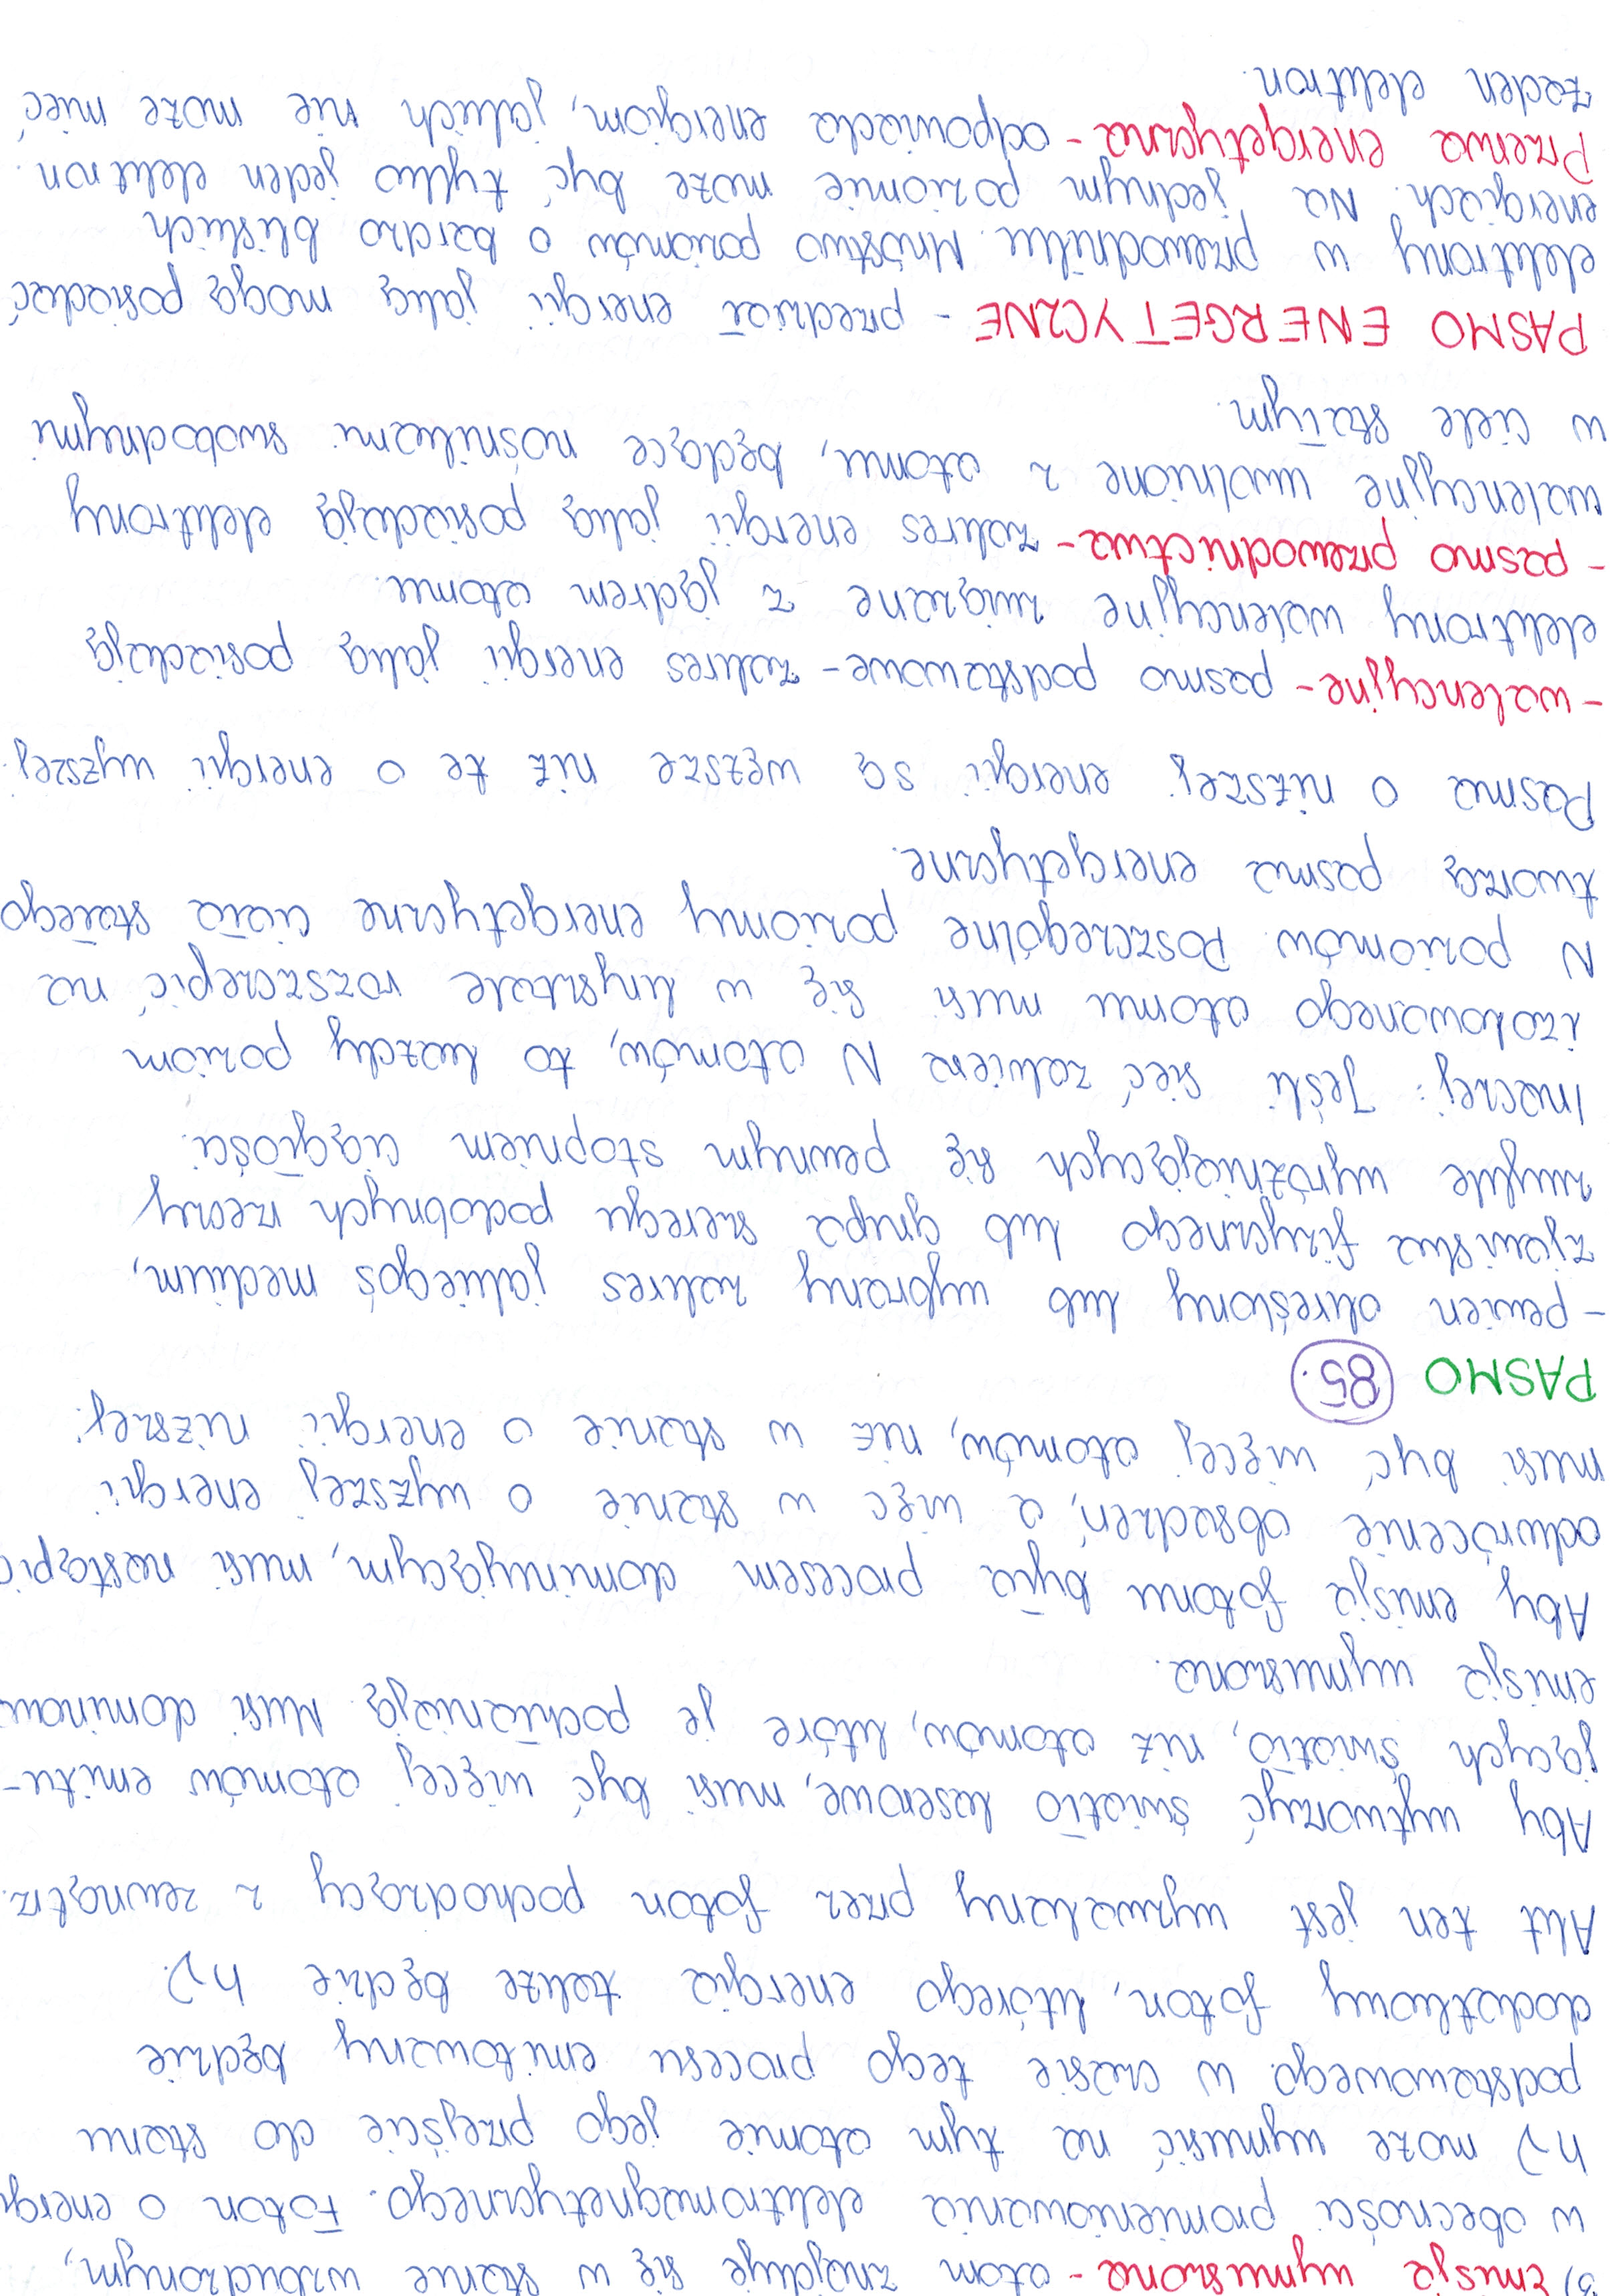 3) emisja wymuszona - atom znajduje się w stanie wzbudzonym,
w obecności promieniowania elektromagnetycznego. Foton o energii
hν może wymusić na tym atomie jego przejście do stanu
podstawowego. W czasie tego procesu emitowany będzie
dodatkowy foton, którego energia także będzie hν.
Akt ten jest wyzwalany przez foton pochodzący z zewnątrz.
Aby wytworzyć światło laserowe, musi być więcej atomów emitu-
jących światło, niż atomów, które je pochłaniają. Musi dominować
emisja wymuszona.
Aby emisja fotonu była procesem dominującym, musi nastąpić
odwrócenie obsadzeń, a więc w stanie o wyższej energii
musi być więcej atomów, niż w stanie o energii niższej.
PASMO 85.
- pewien określony lub wybrany zakres jakiegoś medium,
zjawiska fizycznego lub grupa szeregu podobnych rzeczy
zwykle wyróżniających się pewnym stopniem ciągłości.
Inaczej: Jeśli sieć zawiera N atomów, to każdy poziom
izolowanego atomu musi się w krysztale rozszczepić na
N poziomów. Poszczególne poziomy energetyczne ciała stałego
tworzą pasma energetyczne.
Pasma o niższej energii są węższe niż te o energii wyższej.
- walencyjne - pasmo podstawowe - zakres energii jaką posiadają
elektrony walencyjne związane z jądrem atomu.
- pasmo przewodnictwa - zakres energii jaką posiadają elektrony
walencyjne uwolnione z atomu, będące nośnikami swobodnymi
w ciele stałym.
PASMO ENERGETYCZNE - przedział energii jaką mogą posiadać
elektrony w przewodniku. Mnóstwo poziomów o bardzo bliskich
energiach. Na jednym poziomie może być tylko jeden elektron.
Przerwa energetyczna - odpowiada energiom, jakich nie może mieć
żaden elektron.